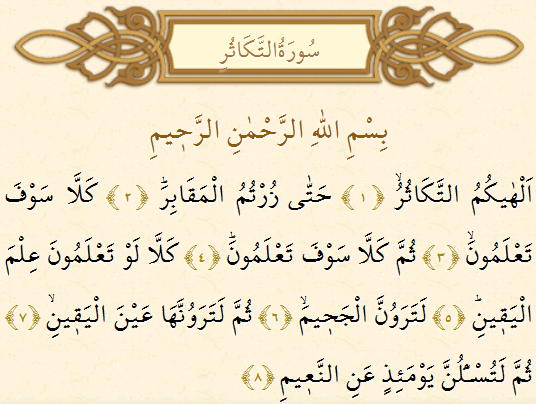 سُورَةُ التَّكَاثُرِ
بِسْمِ اللّٰهِ الرَّحْمٰنِ الرَّح۪يمِ
اَلْهٰيكُمُ التَّكَاثُرُۙ ﴿١﴾ حَتّٰى زُرْتُمُ الْمَقَابِرَۜ ﴿٢﴾ كَلَّا سَوْفَ
تَعْلَمُونَۙ ﴿٣﴾ ثُمَّ كَلَّا سَوْفَ تَعْلَمُونَۜ ﴿٤﴾ كَلَّا لَوْ تَعْلَمُونَ عِلْمَ
الْيَق۪ينِۜ ﴿٥﴾ لَتَرَوُنَّ الْجَح۪يمَۙ ﴿٦﴾ ثُمَّ لَتَرَوُنَّهَا عَيْنَ الْيَق۪ينِۙ ﴿٧﴾
ثُمَّ لَتُسْـَٔلُنَّ يَوْمَئِذٍ عَنِ النَّع۪يمِ ﴿٨﴾